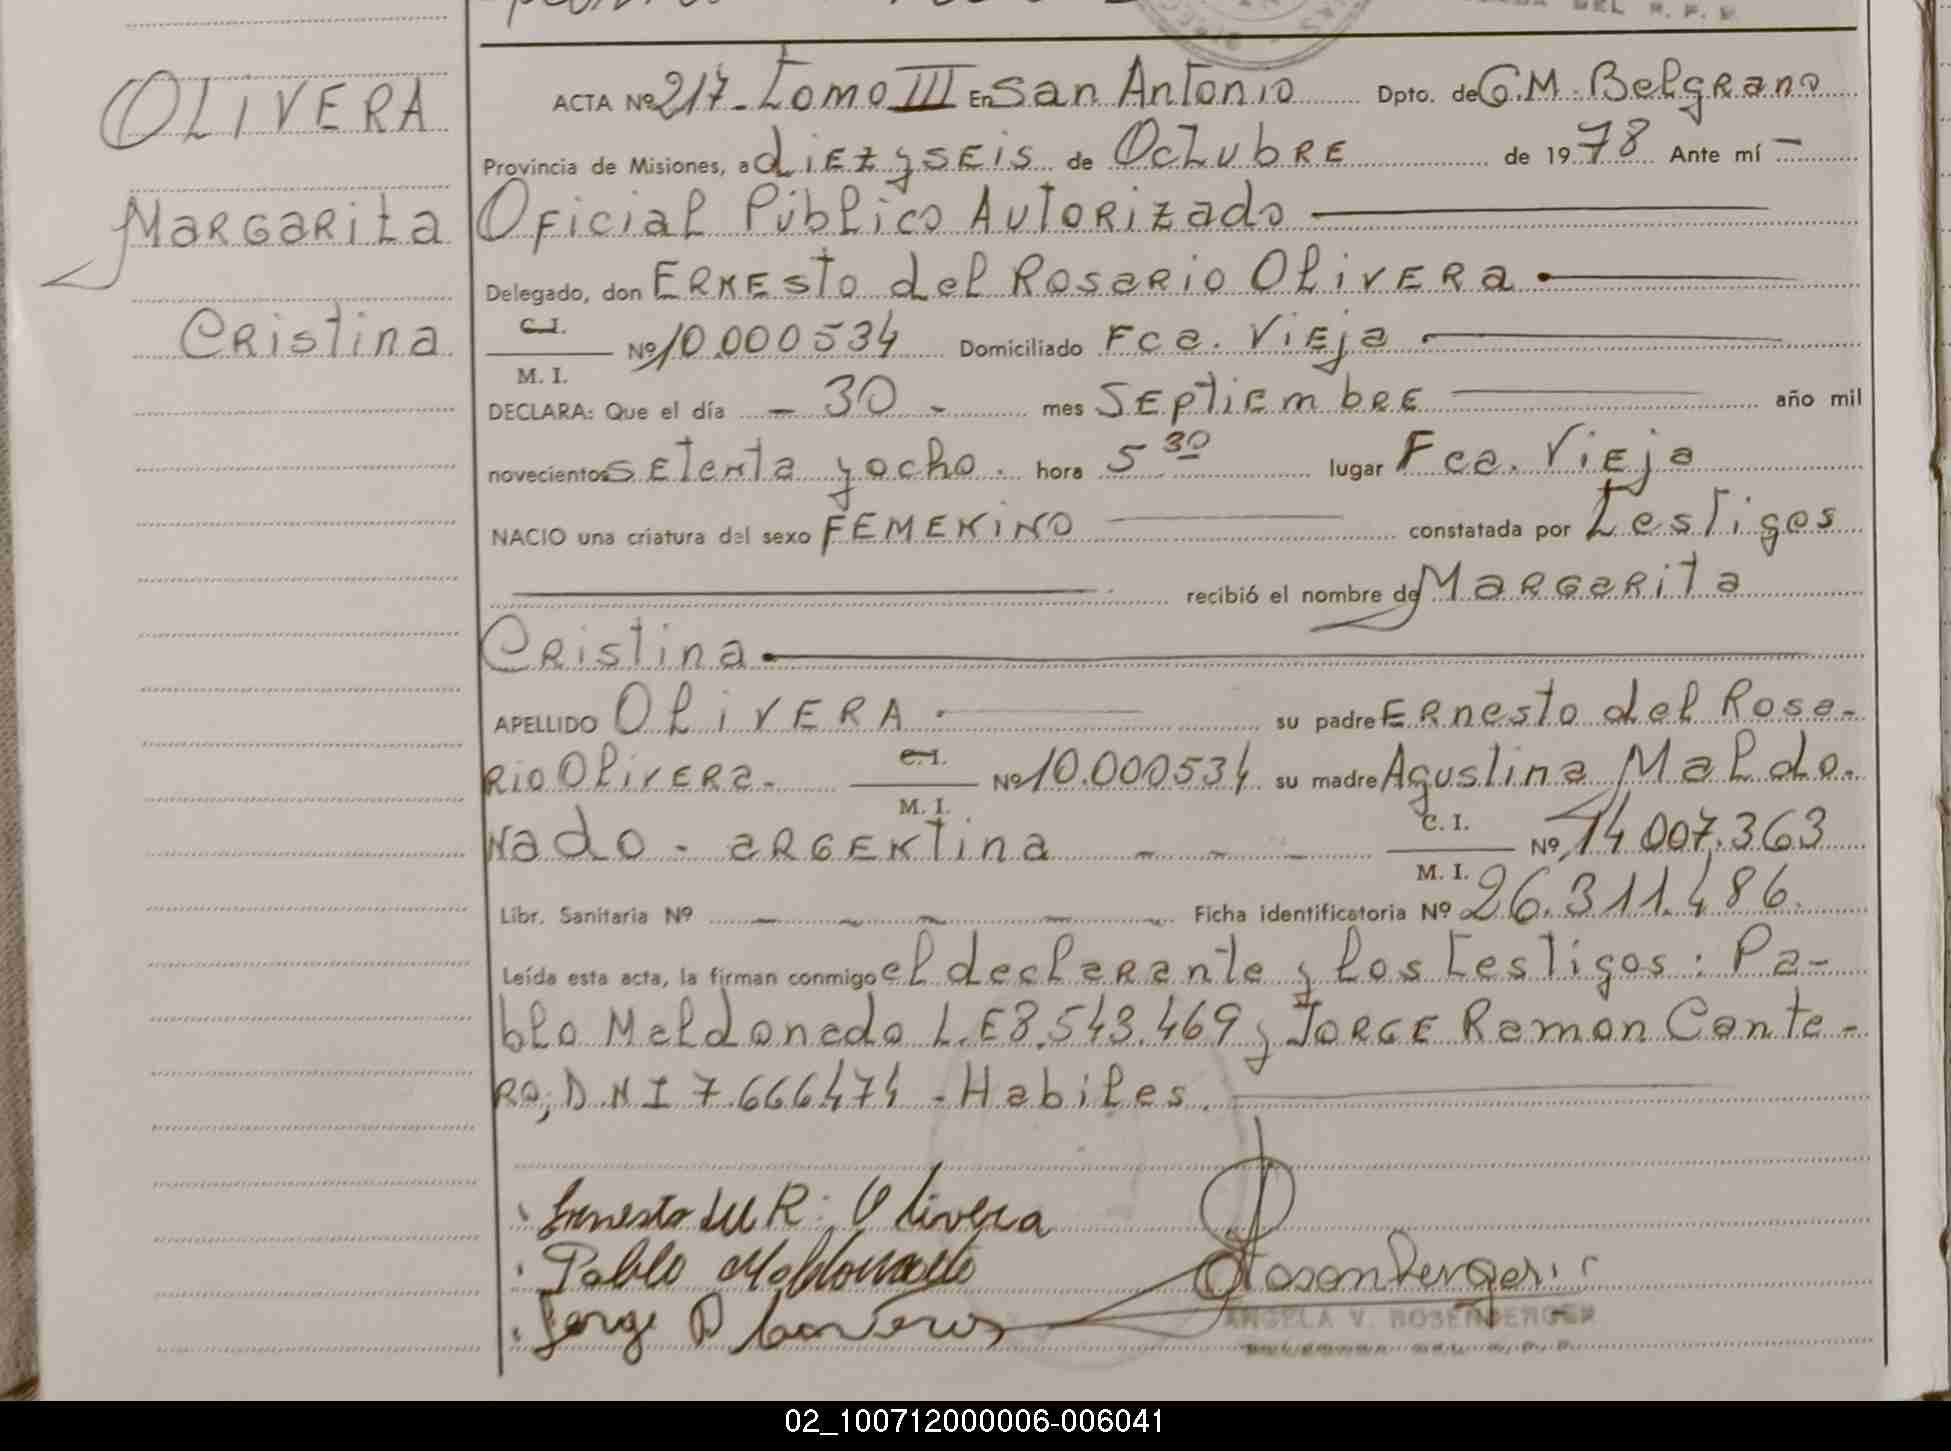 OLIVERA
Margarita
Cristina
ACTA Nº 217- Tomo III En San Antonio Dpto. de G.M. Belgrano
Provincia de Misiones, a diezyseis de Octubre de 1978 Ante mí -
Oficial Público Autorizado
Delegado, don Ernesto del Rosario Olivera.
C.I.
Nº 10.000534 Domiciliado Fca. Vieja
M. I.
DECLARA: Que el día - 30 - mes Septiembre año mil
novecientos setenta y ocho. hora 5 30 lugar Fca. Vieja
NACIO una criatura del sexo FEMENINO constatada por Testigos
recibió el nombre de Margarita
Cristina
APELLIDO OLIVERA su padre Ernesto del Rosa-
rio Olivera. C.I. Nº 10.000534 su madre Agustina Maldo-
M. I.
nado - argentina - - - C. I. Nº 14.007.363
M. I.
Libr. Sanitaria Nº - - - - - Ficha identificatoria Nº 26.311.486.
Leída esta acta, la firman conmigo el declarante y los testigos: Pa-
blo Maldonado L.E 8.543.469 y Jorge Ramon Cante-
ro, D.N I 7.666474 - Habiles.
Ernesto del R. Olivera
Pablo Maldonado
Rosenberger
Jorge
ANGELA V. ROSENBERGER
02_100712000006-006041